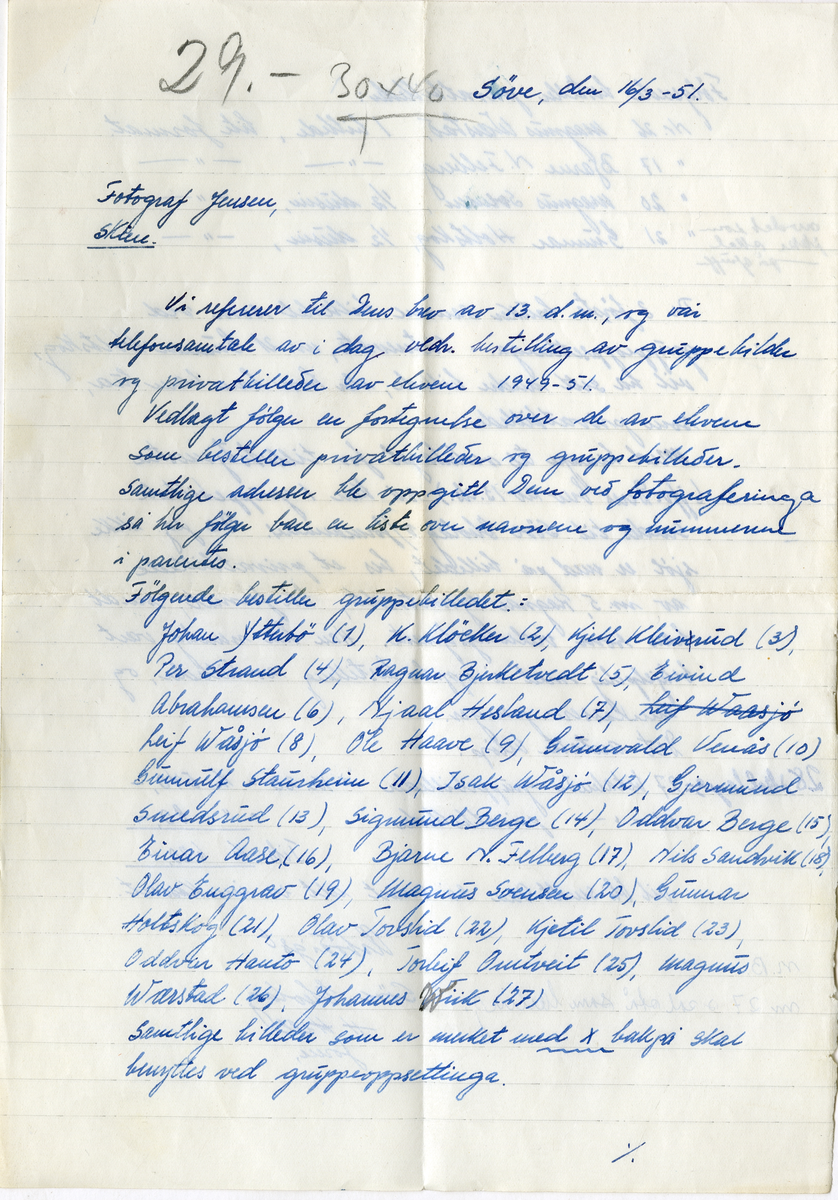 29.- 30x40 Söve, den 16/3-51.
Fotograf Jensen,
Skien.
Vi refererer til Deres brev av 13. d.m., og vår
telefonsamtale av i dag vedr. bestilling av gruppebilder
og privatbilleder av elevene 1949-51.
Vedlagt følger en fortegnelse over de av elevene
som bestiller privatbilleder og gruppebilleder.
Samtlige adresser ble oppgitt Dem ved fotograferinga
så her følger bare en liste over navnene og nummerene
i parentes.
Følgende bestiller gruppebilledet.:
Johan Ytterbö (1), K. Klöcker (2), Kjell Kleivrud (3),
Per Strand (4), Ragnar Bjerketvedt (5), Eivind
Abrahamsen (6), Njaal Hesland (7), Leif Waasjö
Leif Wåsjö (8), Ole Haave (9), Gunnvald Venås (10)
Gunnulf Staurheim (11), Isak Wåsjö (12), Gjermund
Smedsrud (13), Sigmund Berge (14), Oddvar Berge (15),
Einar Aase, (16), Bjarne N. Felberg (17), Nils Sandvik (18),
Olav Enggrav (19), Magnus Svensen (20), Gunnar
Holtskog (21), Olav Tovslid (22), Kjetil Tovslid (23),
Oddvar Hauto (24), Torleif Omtveit (25), Magnus
Wærstad (26), Johannes Wiik (27)
Samtlige billeder som er merket med X bakpå skal
benyttes ved gruppeoppsettinga.
./.